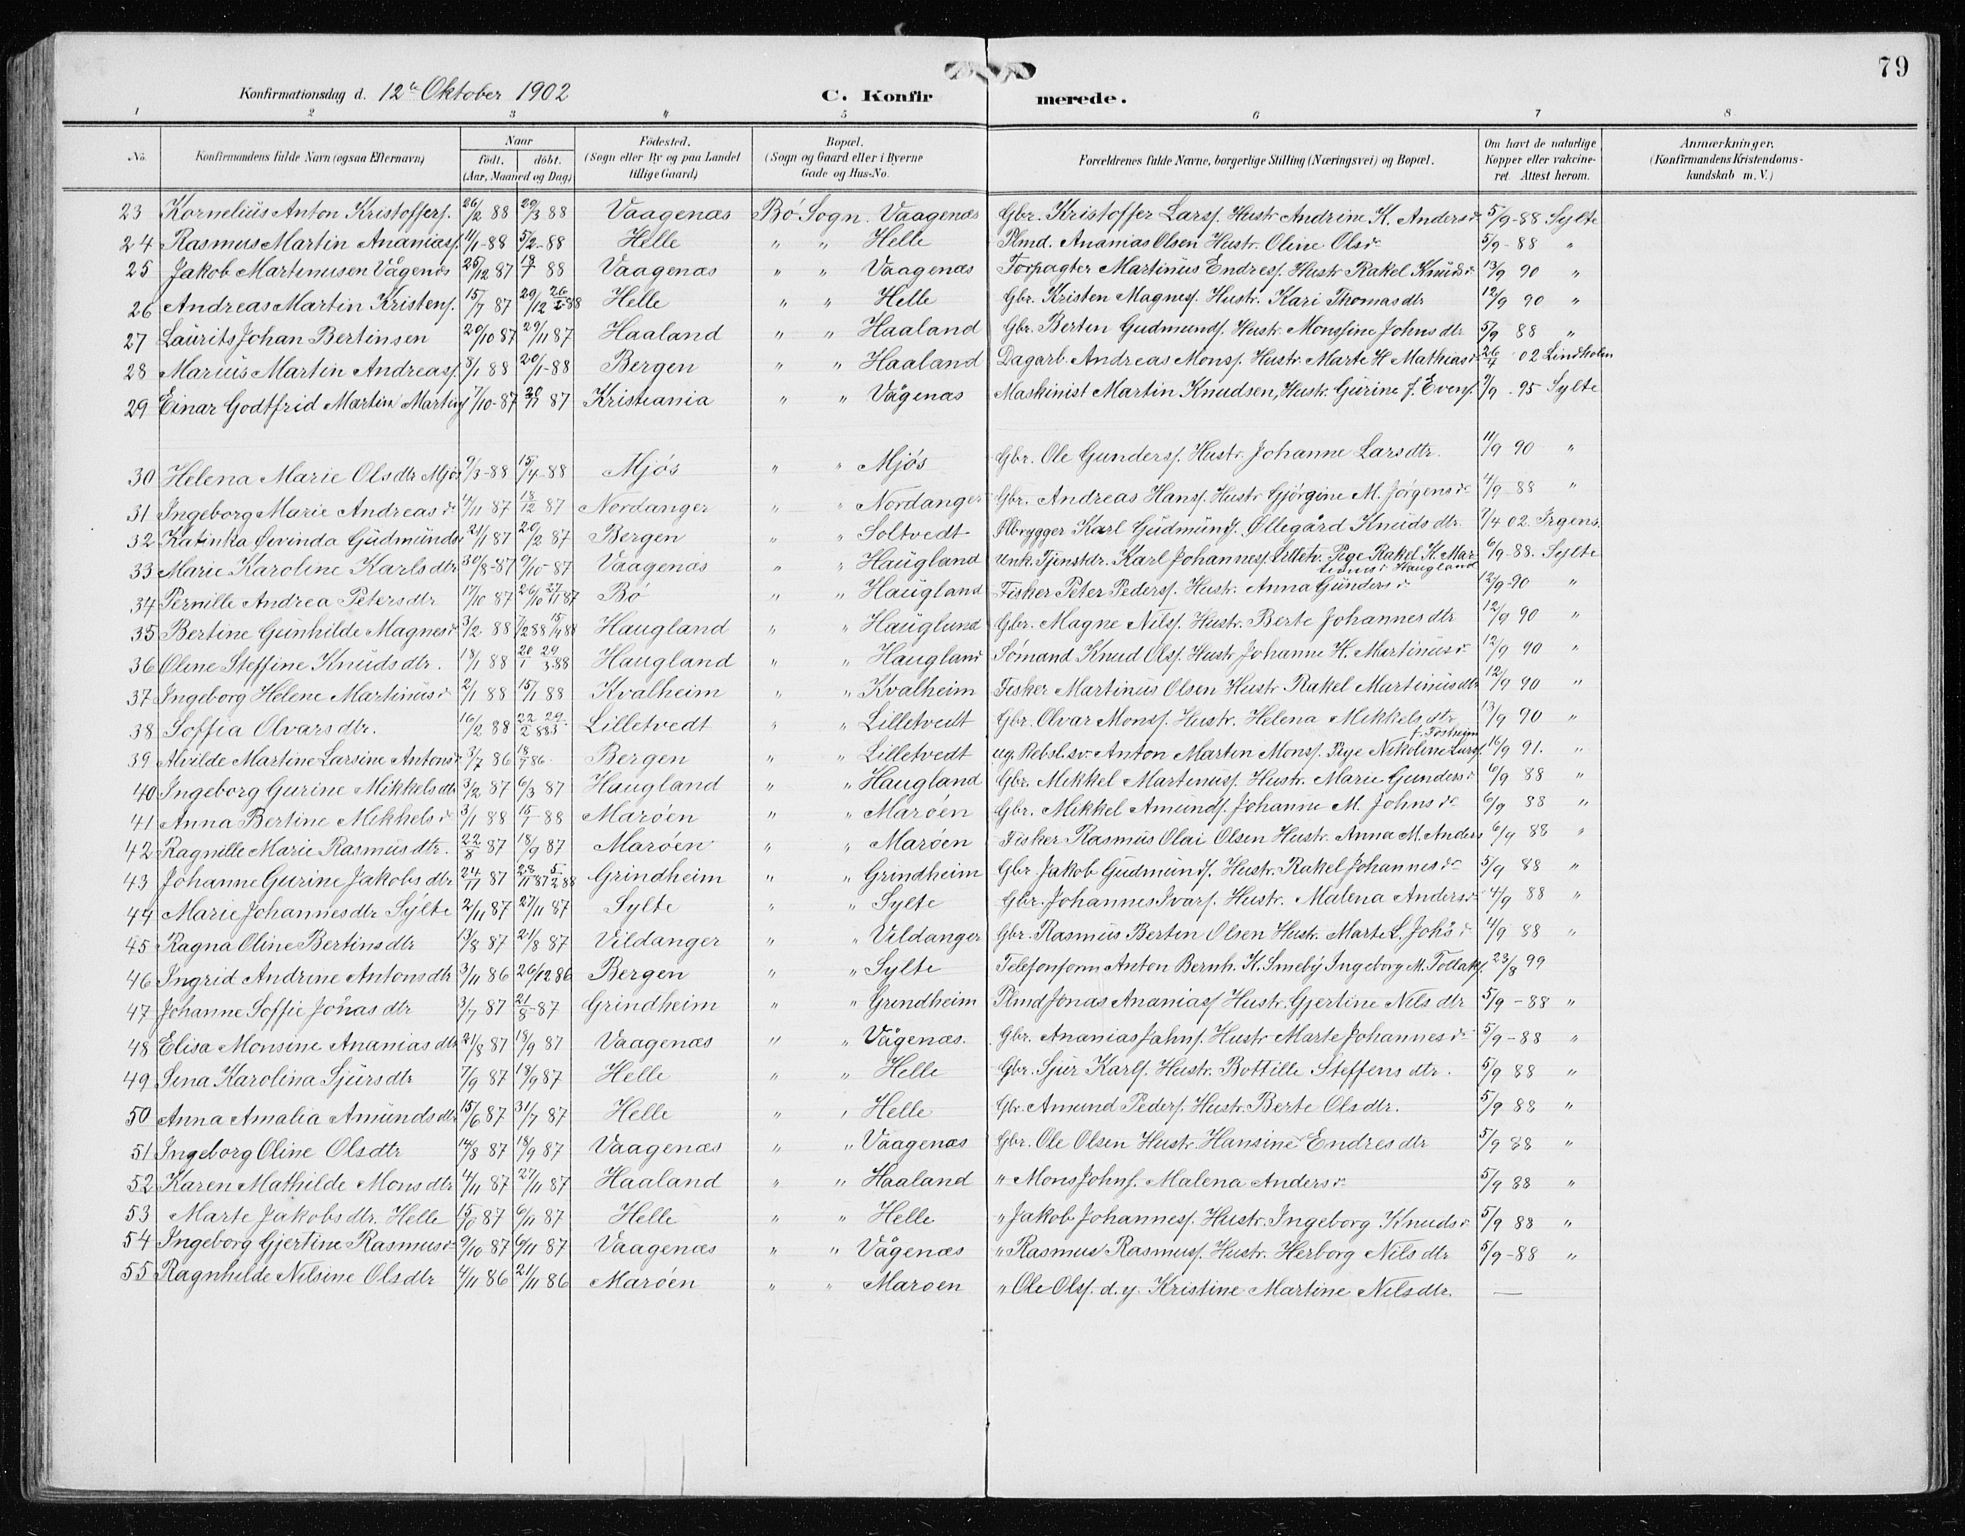 79
Konfirmationsdag d. 12te Oktober 1902 C. Konfirmerede.
1 2 3 4 5 6 7 8
No. Konfirmandens fulde Navn (ogsaa Efternavn) Naar födt. döbt. (Aar, Maaned og Dag) Födested. (Sogn eller By og paa Landet tillige Gaard) Bopæl. (Sogn og Gaard eller i Byerne Gade og Hus-No. Forældrenes fulde Navne, borgerlige Stilling (Næringsvei) og Bopæl. Om havt de naturlige Kopper eller vakcineret. Attest herom. Anmærkninger. (Konfirmandens Kristendomskundskab m. V.)
23 Kornelius Anton Kristoffers. 26/2 88 29/3 88 Vaagenæs Bö Sogn. Vaagenæs Gbr. Kristoffer Lars. Hustr Andrine K. Andersd 5/9-88 Sylte
24 Rasmus Martin Ananias. 11/1-88 5/2-88 Helle " " Helle Plmd. Ananias Olsen Hustr. Oline Olsd 5/9-88 "
25 Jakob Martinusen Vågenæs 26/12 87 18/7 88 Vaagenæs " " Vaagenæs Forpagter Martinus Endres. Hustr Rakel Knudsd 13/9 90 "
26 Andreas Martin Kristens. 15/7 87 29/12 26/2-88 Helle " " Helle Gbr. Kristen Magnes. Hustr. Kari Thomasdtr 12/9 90 "
27 Laurits Johan Bertinsen 20/10 87 29/11 87 Haaland " " Haaland Gbr. Berten Gudmunds. Hustr Monssine Johnsdtr 5/9 88 "
28 Marius Martin Andreas. 8/1 88 20/1-88 Bergen " " Haaland Dagarb. Andreas Mons. Hustr. Marte H Mathiasd 26/4 02 Lindholm
29 Einar Godtfrid Martin Martins 7/10-87 20/11 87 Kristiania " " Vågenæs Maskinist Martin Knudsen, Hustr. Gurine f. Evens. 9/9 95 Sylte
30 Helena Marie Olsdtr Mjös 9/3-88 15/4-88 Mjös " " Mjös Gbr. Ole Gunders. Hustr. Johanne Larsdtr. 11/9 90 "
31 Ingeborg Marie Andreasd 14/11 87 18/12 87 Nordanger " " Nordanger Gbr. Andreas Hans. Hustr Gjörgine M. Jörgensd 4/9-88 "
32 Katinka Övinda Gudmunds 21/1 87 20/2 87 Bergen " " Soltvedt Ølbrygger Karl Gudmunds. Øllegård Knudsdtr. 7/4 02. Irgens.
33 Marie Karoline Karlsdtr 30/8-87 9/10-87 Vaagenæs " " Haugland Unk. Tjenstdr. Karl Johannes. Pige Rakel K. Mar- 6/9-88. Sylte
tinusd Haugland
34 Pernille Andrea Petersdtr 17/10 87 26/10 27/11 87 Bö " " Haugland Fisker Peter Peders. Hustr. Anna Gundersd 12/9-90 "
35 Bertine Gunhilde Magnesd 3/2 88 7/2 88 15/4 88 Haugland " " Haugland Gbr. Magne Nils. Hustr. Berte Johannesdtr 12/9 90 "
36 Oline Steffine Knudsdtr. 18/1 88 20/1 29/3-88 Haugland " " Haugland Sömand Knud Ols. Hustr Johanne H. Martinusd 12/9 90 "
37 Ingeborg Helene Martinusd 2/1 88 15/1 88 Kvalheim " " Kvalheim Fisker Martinus Olsen Hustr Rakel Martinusdtr 12/9 90 "
38 Soffia Olvarsdtr. 16/2 88 22/2 29/3 88 Lilletvedt " " Lilletvedt Gbr. Olvar Mons. Hustr. Helena Mikkelsdtr 13/9 90 "
39 Alvilde Martine Larsine Antonsd 3/7 86 18/7 86 Bergen " " Lilletvedt ug. Rebsl.sv. Anton Martin Mons. Pige Nikoline Lars. 16/9 91. "
40 Ingeborg Gurine Mikkelsdtr 3/2 87 6/3 87 Haugland " " Haugland Gbr. Mikkel Martinus. Hustr. Marie Gundersd 6/9 88 "
41 Anna Bertine Mikkelsd 3/1 88 15/1-88 Maröen " " Maröen Gbr. Mikkel Amunds. Johanne M. Johnsd 6/9 88 "
42 Ragnille Marie Rasmusdtr. 22/8 87 18/9 87 Maröen " " Maröen Fisker Rasmus Olai Olsen Hustr. Anna M. Anders 6/9 88 "
43 Johanne Gurine Jakobsdtr 24/11 87 28/11 87 5/2 88 Grindheim " " Grindheim Gbr Jakob Gudmunds. Hustr. Rakel Johannesd 5/9 88 "
44 Marie Johannesdtr Sylte 2/11 87 27/11 87 Sylte " " Sylte Gbr. Johannes Ivars. Hustr. Malena Andersd 4/9 88 "
45 Ragna Oline Bertinsdtr 13/8 87 21/8 87 Vildanger " " Vildanger Gbr. Rasmus Berten Olsen Hustr. Marte L. Johsd 4/9 88 "
46 Ingrid Andrine Antonsdtr 3/11 86 26/12 86 Bergen " " Sylte Telefonform Anton Bernh. K. Smeby Ingeborg M. Tollaks. 23/8 99
47 Johanne Soffie Jonasdtr 3/7 87 21/8-87 Grindheim " " Grindheim Plmd Jonas Ananias. Hustr. Gjertine Nilsdtr 5/9-88 "
48 Elisa Monsine Ananiasdtr 21/8 87 18/9 87 Vaagenæs " " Vågenæs. Gbr. Ananias Jahns. Hustr Marte Johannesd 5/9-88 "
49 Sena Karolina Sjursdtr 7/9 87 18/9 87 Helle " " Helle Gbr. Sjur Karls. Hustr. Bottille Steffensdtr. 5/9 88 "
50 Anna Amalia Amundsdtr 15/6 87 31/7 87 Helle " " Helle Gbr. Amund Peders. Hustr. Berte Olsdtr. 5/9 88 "
51 Ingeborg Oline Olsdtr 14/8 87 18/9 87 Vaagenæs " " Vaagenæs Gbr. Ole Olsen Hustr. Hansine Endresdtr 5/9 88 "
52 Karen Mathilde Monsdtr 4/11 87 27/11 87 Haaland " " Haaland " Mons Johns. Malena Andersd 5/9 88 "
53 Marte Jakobsdtr. Helle 87 6/11 87 Helle " " Helle " Jakob Johannes. Hustr. Ingeborg Knudsd 5/9 88 "
54 Ingeborg Gjertine Rasmusd 9/10 87 6/11 87 Vaagenæs " " Vågenæs " Rasmus Rasmus. Hustr. Herborg Nilsdtr 5/9-88 "
55 Ragnhilde Nilsine Olsdtr 4/11 86 21/11 86 Maröen " " Maroen " Ole Ols. d.y. Kristine Martine Nilsdtr. —